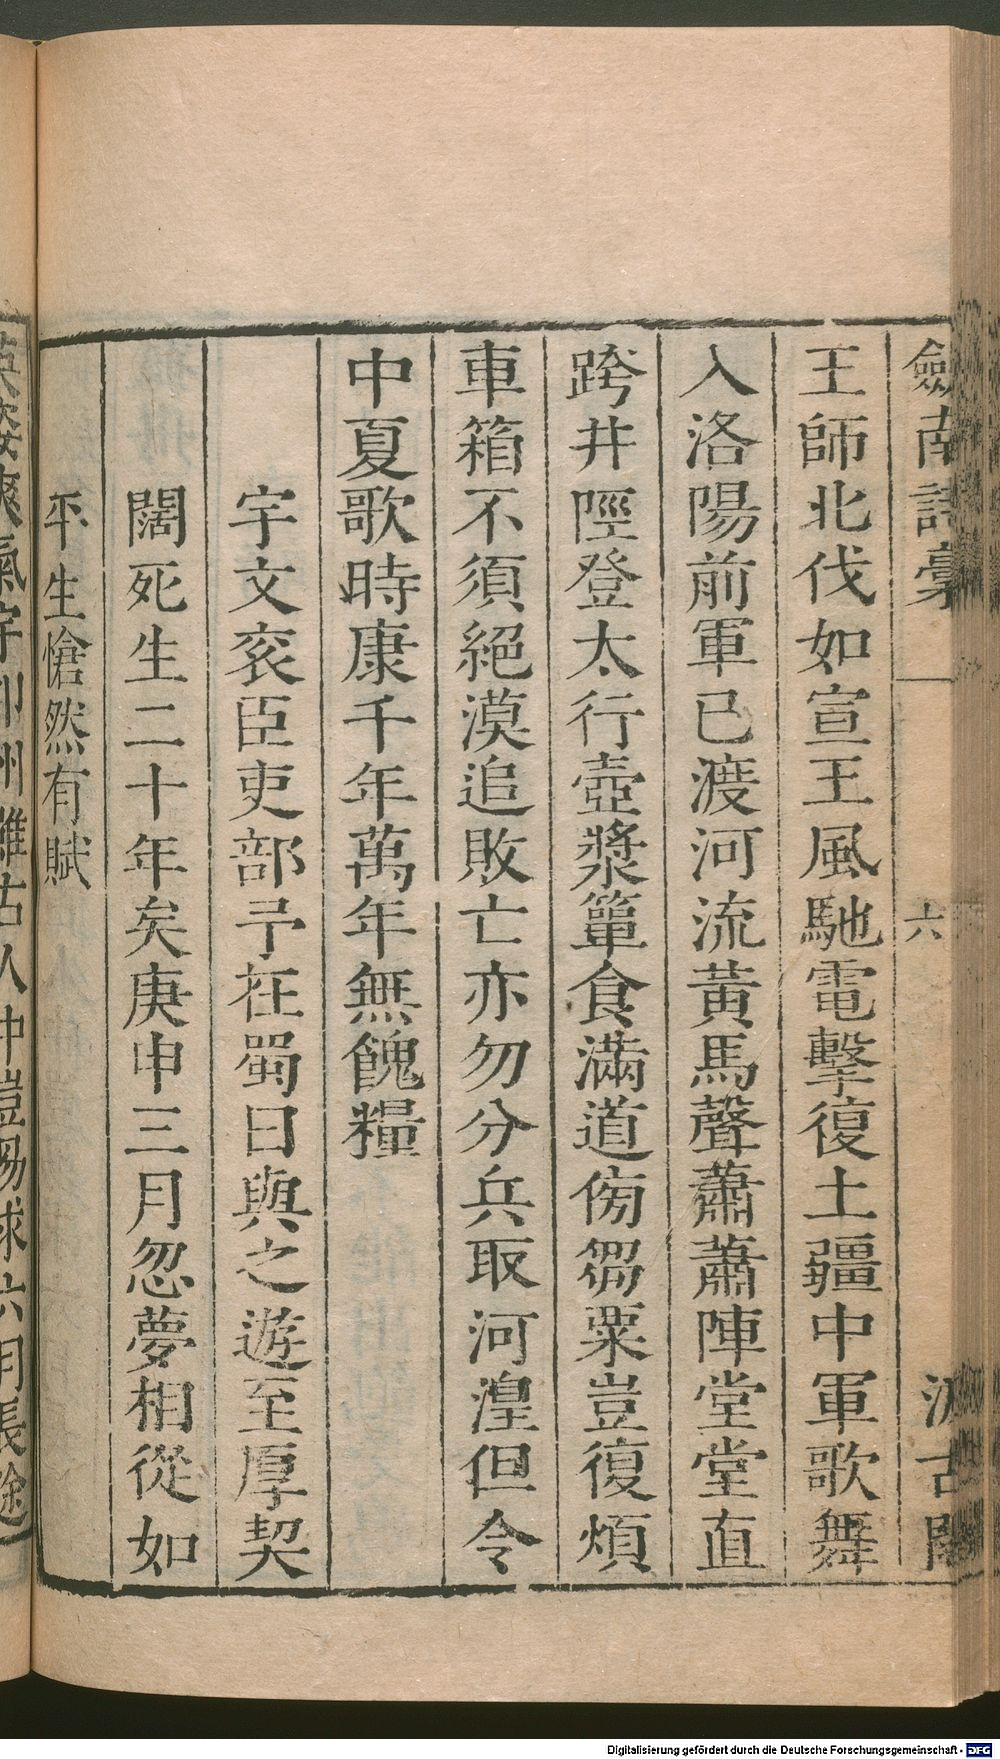 劍南詩稾 六 汲古閣
王師北伐如宣王風馳電擊復土疆中軍歌舞
入洛陽前軍已渡河流黃馬聲蕭蕭陣堂堂直
跨井陘登太行壺漿簞食滿道傍芻粟豈復煩
車箱不須絕漠追敗亡亦勿分兵取河湟但令
中夏歌時康千年萬年無餽糧
宇文衮臣吏部予在蜀日與之遊至厚契
闊死生二十年矣庚申三月忽夢相從如
平生愴然有賦
英姿爽氣宇卭州雖古人中豈易求六月長途
Digitalisierung gefördert durch die Deutsche Forschungsgemeinschaft - DFG